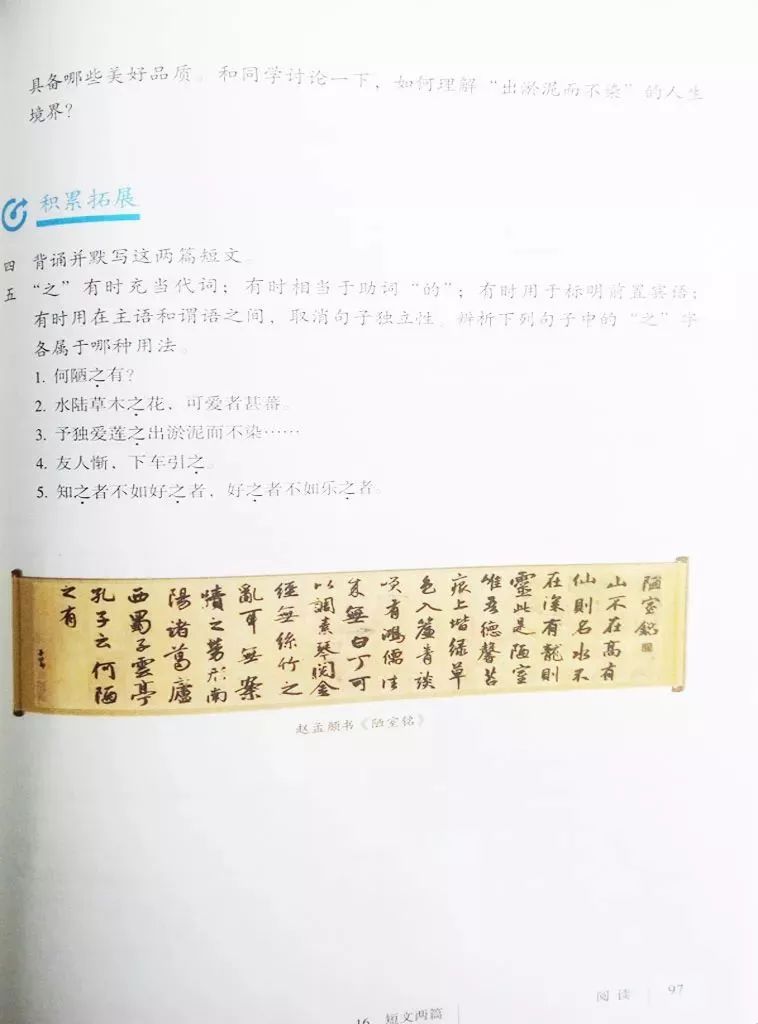 具备哪些美好品质。和同学讨论一下，如何理解“出淤泥而不染”的人生
境界？
积累拓展
四 背诵并默写这两篇短文。
五 “之”有时充当代词；有时相当于助词“的”；有时用于标明前置宾语；
有时用在主语和谓语之间，取消句子独立性。辨析下列句子中的“之”字
各属于哪种用法。
1. 何陋之有？
2. 水陆草木之花，可爱者甚蕃。
3. 予独爱莲之出淤泥而不染……
4. 友人惭，下车引之。
5. 知之者不如好之者，好之者不如乐之者。
陋室銘
山不在高有
仙則名水不
在深有龍則
靈此是陋室
惟吾德馨苔
痕上堦緑草
色入簾青談
笑有鴻儒往
来無白丁可
以調素琴閲金
經無絲竹之
亂耳無案
牘之勞形南
陽諸葛廬
西蜀子雲亭
孔子云何陋
之有
赵孟頫书《陋室铭》
阅读 97
16 短文两篇